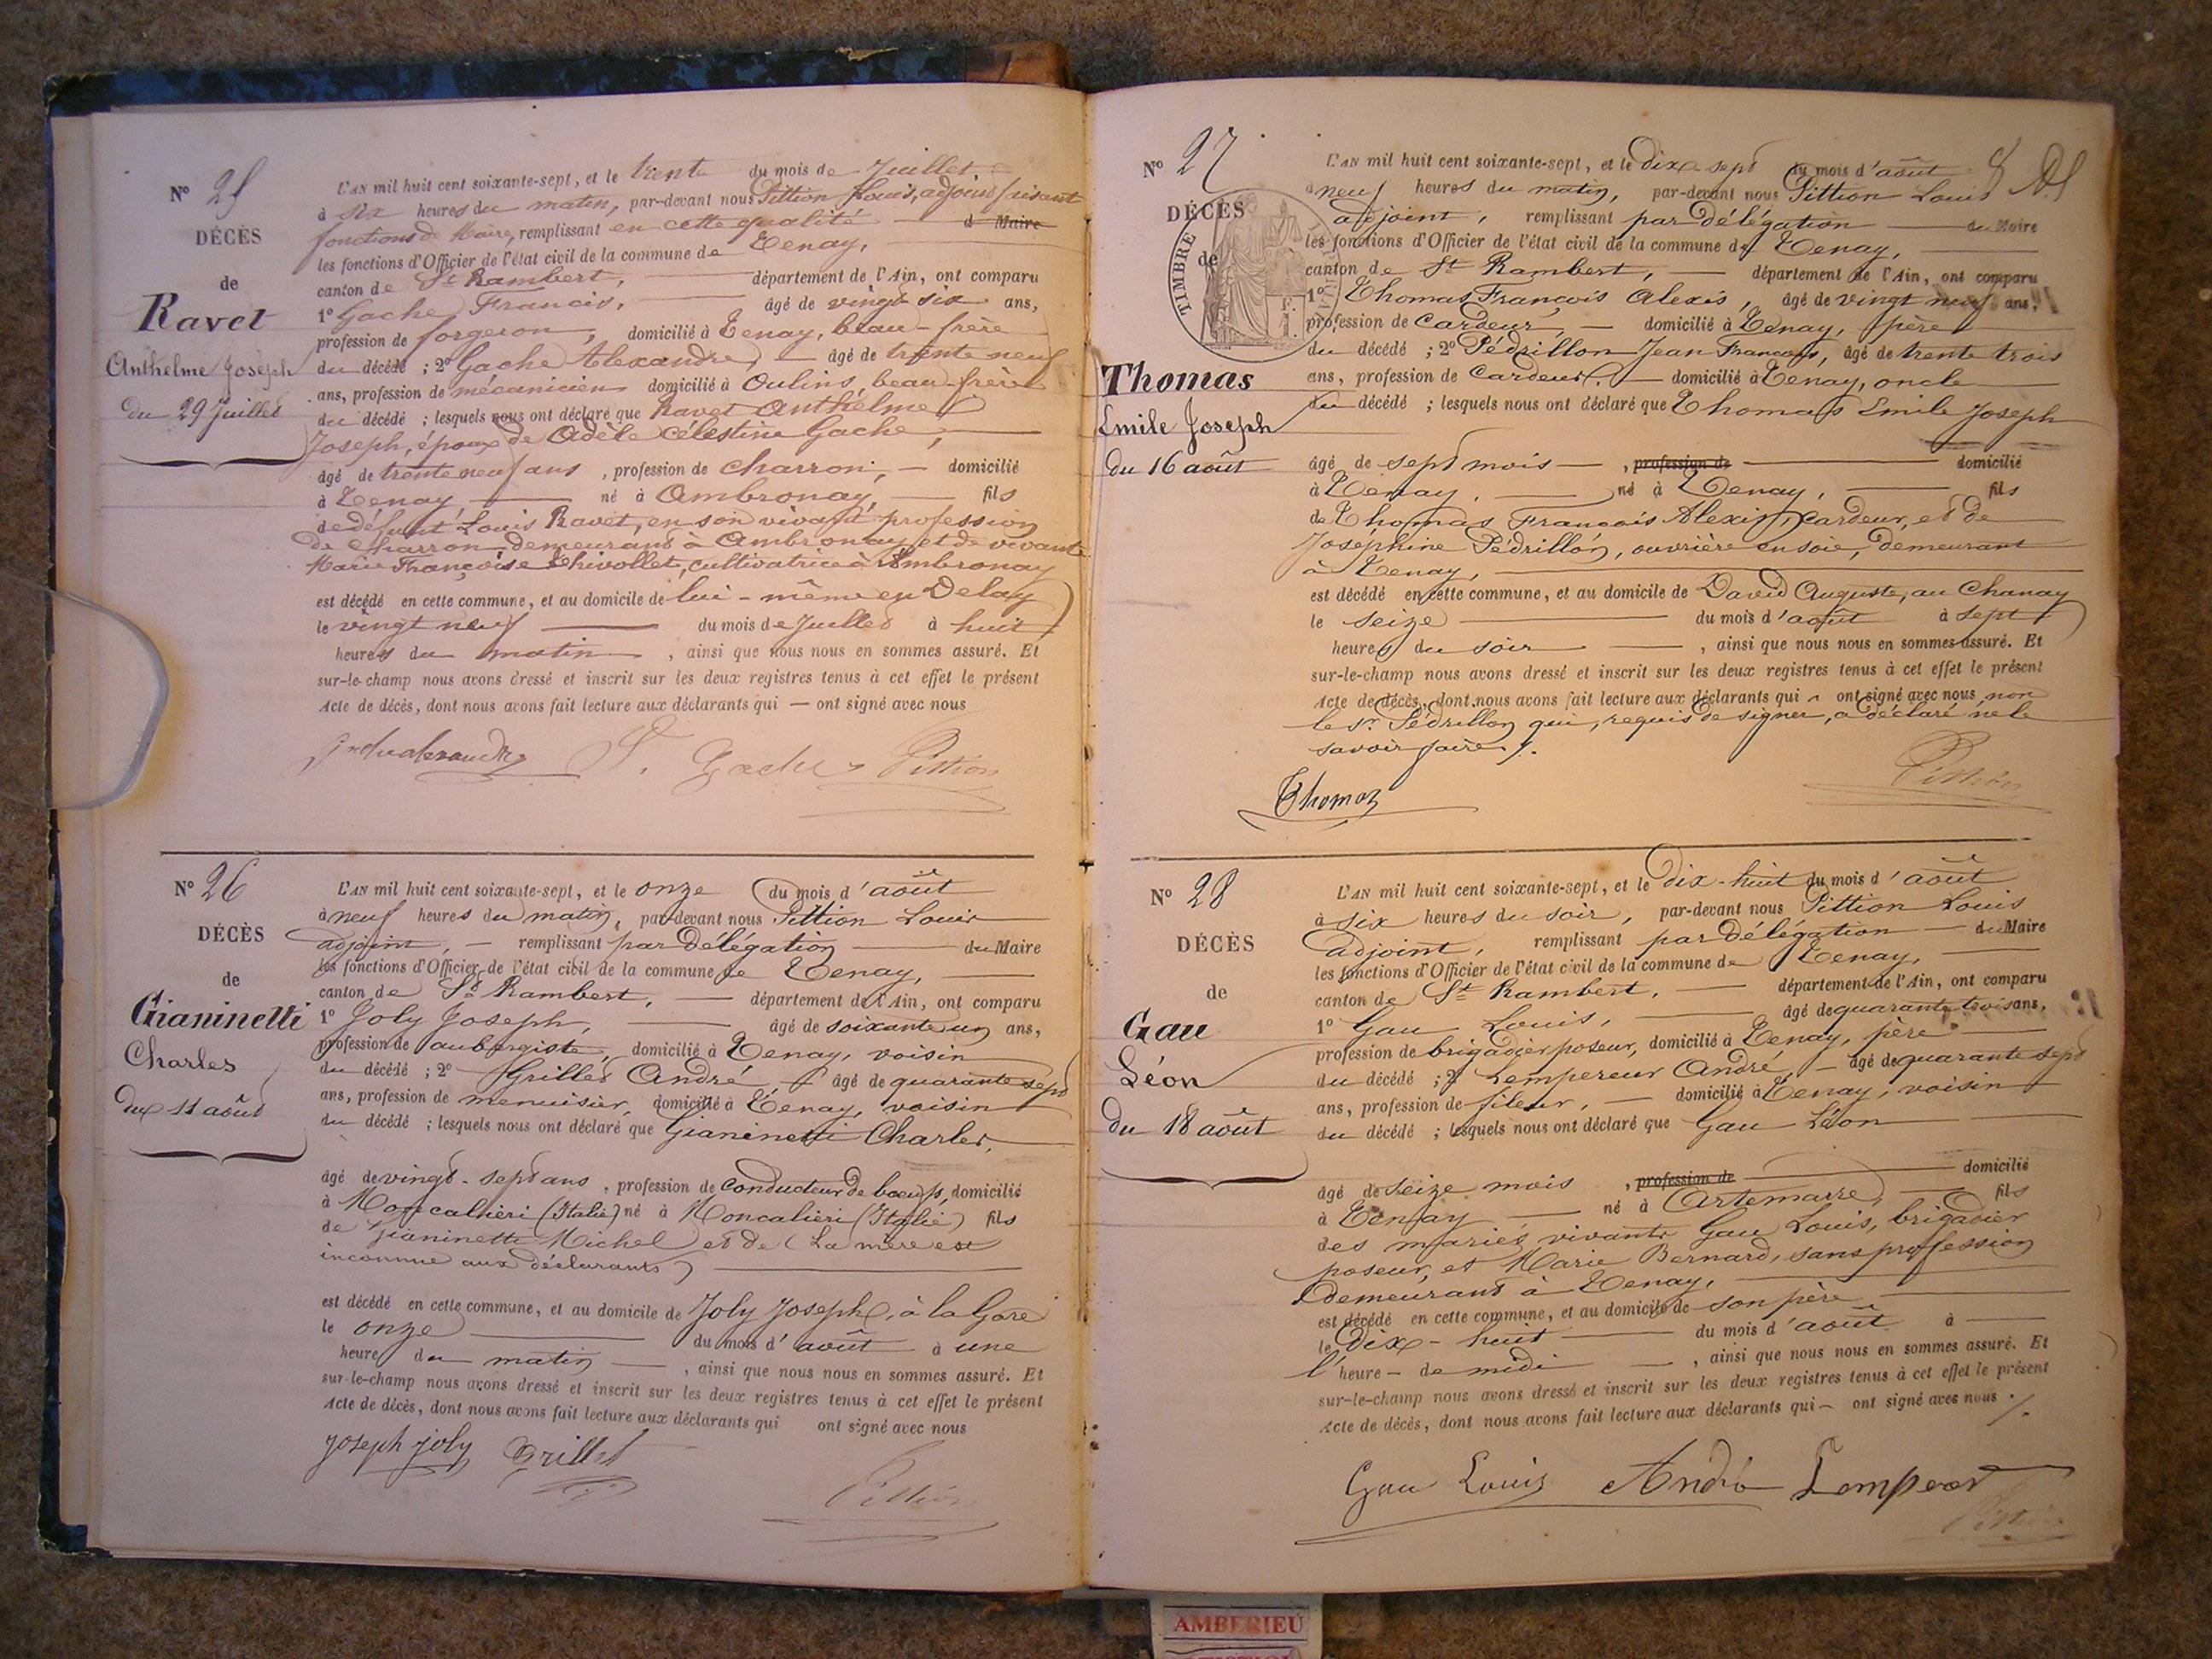 N° 25
DÉCÈS
de
Ravet
Anthelme Joseph
du 29 Juillet
L'AN mil huit cent soixante-sept, et le trente du mois de Juillet
à six heures du matin, par-devant nous Pittion Louis, adjoint faisant
fonctions de Maire, remplissant en cette qualité d Maire
les fonctions d'Officier de l'état civil de la commune de Tenay,
canton de St Rambert, département de l'Ain, ont comparu
1° Gache Francis, âgé de vingt six ans,
profession de forgeron, domicilié à Tenay, beau-frère
du décédé ; 2° Gache Alexandre, âgé de trente neuf
ans, profession de mécanicien domicilié à Oulins, beau-frère
du décédé ; lesquels nous ont déclaré que Ravet Anthelme
Joseph, époux de Adèle Célestine Gache,
âgé de trente neuf ans, profession de charron, domicilié
à Tenay, né à Ambronay, fils
de défunt Louis Ravet, en son vivant profession
de charron, demeurant à Ambronay et de vivante
Marie Françoise Thevollet, cultivatrice à Ambronay
est décédé en cette commune, et au domicile de lui-même en Delay
le vingt neuf du mois de Juillet à huit
heures du matin, ainsi que nous nous en sommes assuré. Et
sur-le-champ nous avons dressé et inscrit sur les deux registres tenus à cet effet le présent
Acte de décès, dont nous avons fait lecture aux déclarants qui — ont signé avec nous
F. Gache Pittion
N° 26
DÉCÈS
de
Gianinetti
Charles
du 11 août
L'AN mil huit cent soixante-sept, et le onze du mois d'août
à neuf heures du matin, par-devant nous Pittion Louis
adjoint, — remplissant par délégation du Maire
les fonctions d'Officier de l'état civil de la commune de Tenay,
canton de St Rambert, département de l'Ain, ont comparu
1° Joly Joseph, âgé de soixante un ans,
profession de aubergiste, domicilié à Tenay, voisin
du décédé ; 2° Grillet André, âgé de quarante sept
ans, profession de menuisier, domicilié à Tenay, voisin
du décédé ; lesquels nous ont déclaré que Gianinetti Charles,
âgé de vingt-sept ans, profession de conducteur de boeufs, domicilié
à Moncalieri (Italie) né à Moncalieri (Italie) fils
de Gianinetti Michel et de (La mère est
inconnue aux déclarants)
est décédé en cette commune, et au domicile de Joly Joseph, à la Gare
le onze du mois d'août à une
heure du matin, ainsi que nous nous en sommes assuré. Et
sur-le-champ nous avons dressé et inscrit sur les deux registres tenus à cet effet le présent
Acte de décès, dont nous avons fait lecture aux déclarants qui ont signé avec nous
Joseph Joly Grillet
Pittion
N° 27
DÉCÈS
de
TIMBRE
Thomas
Emile Joseph
du 16 août
L'AN mil huit cent soixante-sept, et le dix sept du mois d'août
à neuf heures du matin, par-devant nous Pittion Louis
adjoint, remplissant par délégation du Maire
les fonctions d'Officier de l'état civil de la commune de Tenay,
canton de St Rambert, — département de l'Ain, ont comparu
1° Thomas François Alexis, âgé de vingt neuf ans,
profession de cardeur, — domicilié à Tenay, père
du décédé ; 2° Pédrillon Jean François, âgé de trente trois
ans, profession de cardeur, — domicilié à Tenay, oncle
du décédé ; lesquels nous ont déclaré que Thomas Emile Joseph
âgé de sept mois —, profession de domicilié
à Tenay, né à Tenay, fils
de Thomas François Alexis, cardeur, et de
Joséphine Pédrillon, ouvrière en soie, demeurant
à Tenay,
est décédé en cette commune, et au domicile de David Auguste, au Chanay
le seize du mois d'août à sept
heures du soir, ainsi que nous nous en sommes assuré. Et
sur-le-champ nous avons dressé et inscrit sur les deux registres tenus à cet effet le présent
Acte de décès, dont nous avons fait lecture aux déclarants qui ont signé avec nous, non
le sr Pédrillon qui, requis de signer, a déclaré ne le
savoir faire.
Thomas
Pittion
N° 28
DÉCÈS
de
Gau
Léon
du 18 août
L'AN mil huit cent soixante-sept, et le dix-huit du mois d'août
à six heures du soir, par-devant nous Pittion Louis
adjoint, remplissant par délégation — du Maire
les fonctions d'Officier de l'état civil de la commune de Tenay,
canton de St Rambert, — département de l'Ain, ont comparu
1° Gau Louis, âgé de quarante trois ans,
profession de brigadier poseur, domicilié à Tenay, père
du décédé ; 2° Lempereur André, — âgé de quarante sept
ans, profession de fileur, — domicilié à Tenay, voisin
du décédé ; lesquels nous ont déclaré que Gau Léon
âgé de seize mois, profession de domicilié
à Tenay né à Artemarre, fils
des mariés vivants Gau Louis, brigadier
poseur, et Marie Bernard, sans profession
demeurant à Tenay,
est décédé en cette commune, et au domicile de son père
le dix-huit du mois d'août à
l'heure de midi —, ainsi que nous nous en sommes assuré. Et
sur-le-champ nous avons dressé et inscrit sur les deux registres tenus à cet effet le présent
Acte de décès, dont nous avons fait lecture aux déclarants qui — ont signé avec nous
Gau Louis André Lemperer
AMBERIEU